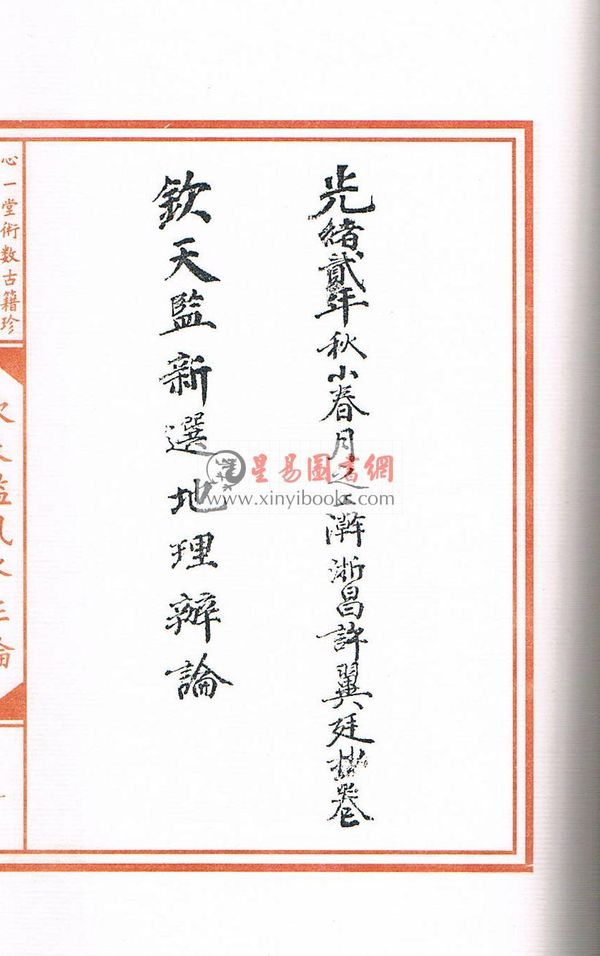 光緒貳年秋小春月之江澣浙昌許翼廷抄卷
欽天監新選地理辦論
心一堂術數古籍珍
欽天監風水正論
星易圖書網
www.xinyibooks.com